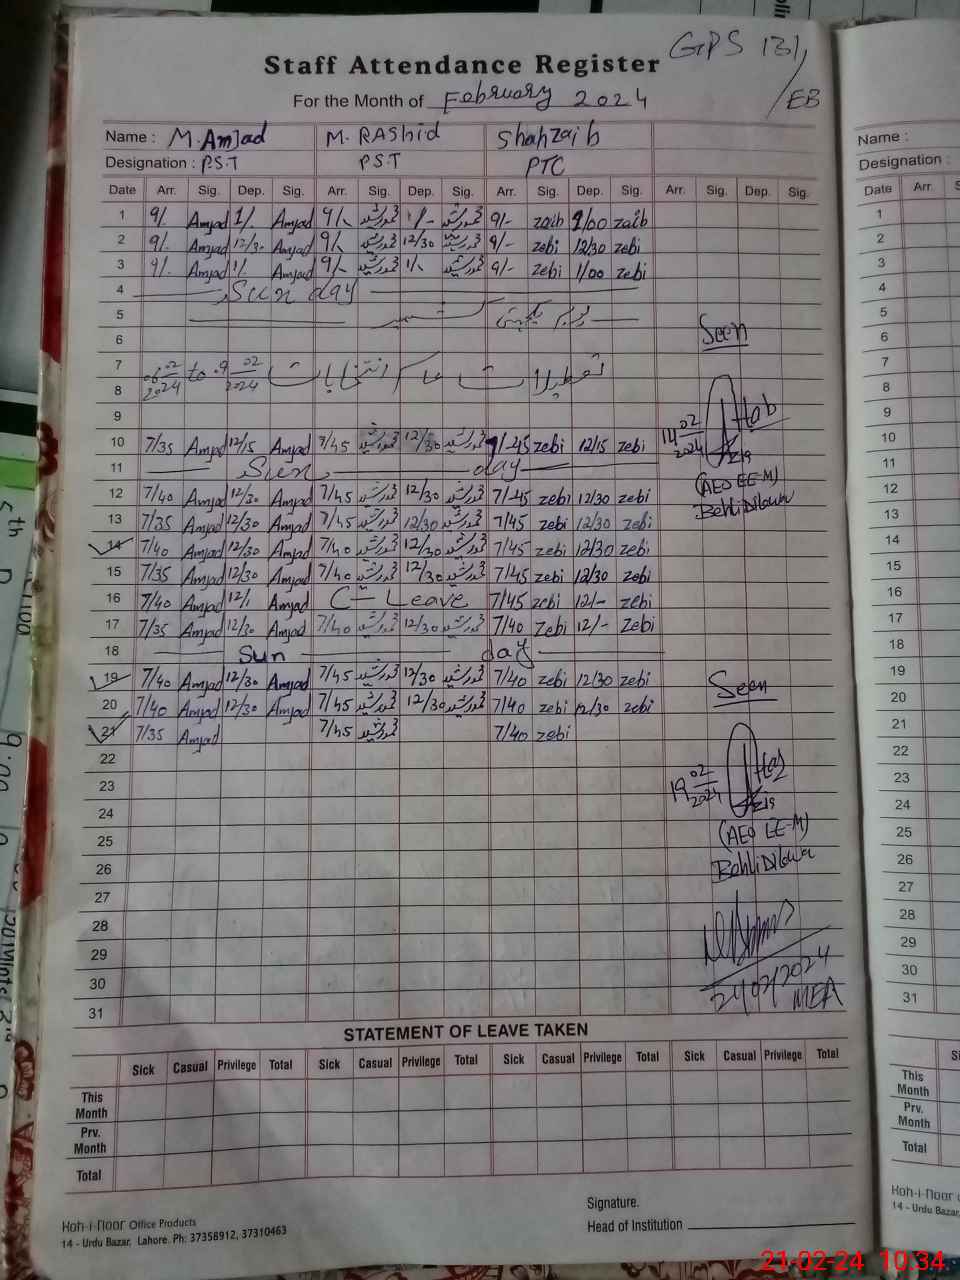 GPS 131/EB
Staff Attendance Register
For the Month of February 2024
Name : M. Amjad M. RAShid Shahzaib
Designation : P.S.T P.S.T PTC
Date Arr. Sig. Dep. Sig. Arr. Sig. Dep. Sig. Arr. Sig. Dep. Sig. Arr. Sig. Dep. Sig.
1 9/- Amjad 1/- Amjad 9/- محمد رشید 1/- محمد رشید 9/- zaib 1/00 zaib
2 9/- Amjad 12/30 Amjad 9/- محمد رشید 12/30 محمد رشید 9/- zebi 12/30 zebi
3 9/- Amjad 1/- Amjad 9/- محمد رشید 1/- محمد رشید 9/- zebi 1/00 zebi
4 Sun day
5 یوم یکجہتی کشمیر
6 Seen
7 تعطیلات عام انتخابات 06-02-2024 to 09-02-2024
8
9
10 7/35 Amjad 12/15 Amjad 7/45 محمد رشید 12/30 محمد رشید 7/45 zebi 12/15 zebi 14-02-2024
11 Sun day
(AEO EE-M)
12 7/40 Amjad 12/30 Amjad 7/45 محمد رشید 12/30 محمد رشید 7/45 zebi 12/30 zebi
13 7/35 Amjad 12/30 Amjad 7/45 محمد رشید 12/30 محمد رشید 7/45 zebi 12/30 zebi
14 7/40 Amjad 12/30 Amjad 7/40 محمد رشید 12/30 محمد رشید 7/45 zebi 12/30 zebi
15 7/35 Amjad 12/30 Amjad 7/40 محمد رشید 12/30 محمد رشید 7/45 zebi 12/30 zebi
16 7/40 Amjad 12/1 Amjad C-Leave 7/45 zebi 12/- zebi
17 7/35 Amjad 12/30 Amjad 7/40 محمد رشید 12/30 محمد رشید 7/40 Zebi 12/- Zebi
18 Sun day
19 7/40 Amjad 12/30 Amjad 7/45 محمد رشید 12/30 محمد رشید 7/40 zebi 12/30 zebi Seen
20 7/40 Amjad 12/30 Amjad 7/45 محمد رشید 12/30 محمد رشید 7/40 zebi 12/30 zebi
21 7/35 Amjad 7/45 محمد رشید 7/40 zebi
22
23 19-02-2024
24
25 (AEO EE-M)
26
27
28
29
30 21/02/2024
31 MEA
STATEMENT OF LEAVE TAKEN
Sick Casual Privilege Total Sick Casual Privilege Total Sick Casual Privilege Total Sick Casual Privilege Total
This Month
Prv. Month
Total
Koh-i-noor Office Products
14 - Urdu Bazar, Lahore. Ph: 37358912, 37310463
Signature.
Head of Institution
Name :
Designation :
Date Arr.
1
2
3
4
5
6
7
8
9
10
11
12
13
14
15
16
17
18
19
20
21
22
23
24
25
26
27
28
29
30
31
This Month
Prv. Month
Total
Koh-i-noor
14 - Urdu Bazar,
21-02-24 10:34